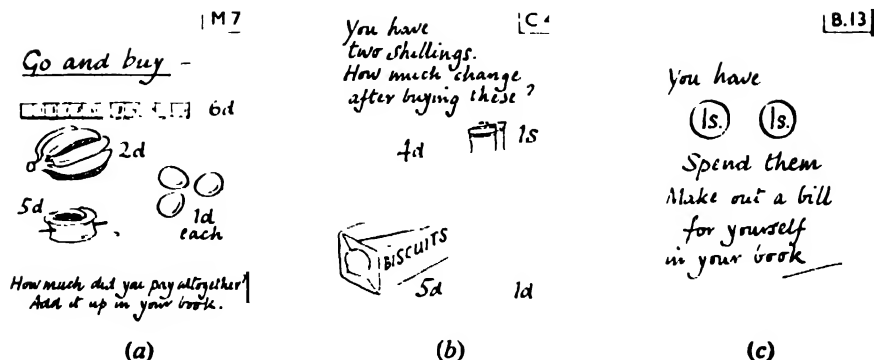 M 7
Go and buy -
6d
2d
5d
1d
each
How much did you pay altogether?
Add it up in your book.
(a)
C
You have
two shillings.
How much change
after buying these?
4d
1s
BISCUITS
5d
1d
(b)
B.13
You have
1s. 1s.
Spend them
Make out a bill
for yourself
in your book
(c)